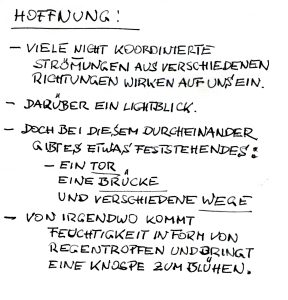 HOFFNUNG:
- VIELE NICHT KOORDINIERTE
STRÖMUNGEN AUS VERSCHIEDENEN
RICHTUNGEN WIRKEN AUF UNS EIN.
- DARÜBER EIN LICHTBLICK.
- DOCH BEI DIESEM DURCHEINANDER
GIBT ES ETWAS FESTSTEHENDES:
- EIN TOR
EINE BRÜCKE
UND VERSCHIEDENE WEGE
- VON IRGENDWO KOMMT
FEUCHTIGKEIT IN FORM VON
REGENTROPFEN UND BRINGT
EINE KNOSPE ZUM BLÜHEN.